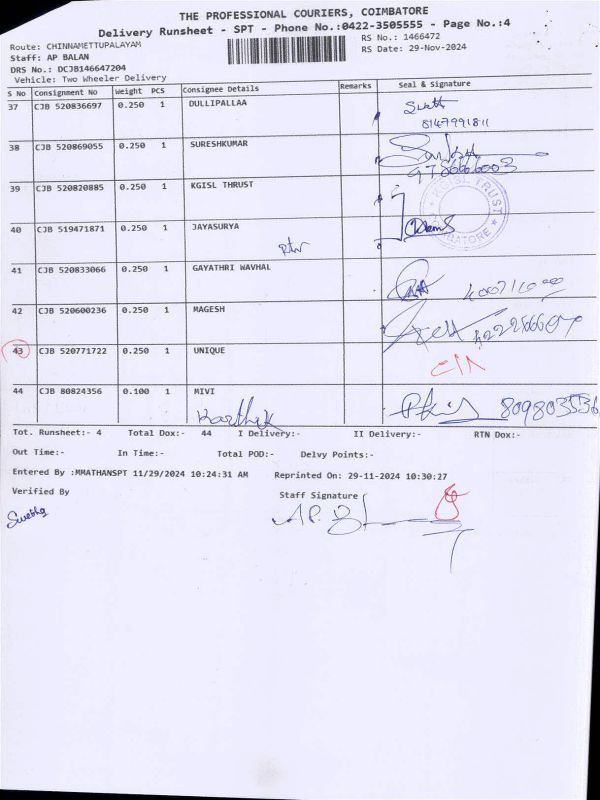 THE PROFESSIONAL COURIERS, COIMBATORE
Delivery Runsheet - SPT - Phone No.:0422-3505555 - Page No.:4
Route: CHINNAMETTUPALAYAM RS No.: 1466472
Staff: AP BALAN RS Date: 29-Nov-2024
DRS No.: DCJB146647204
Vehicle: Two Wheeler Delivery
S No Consignment No Weight PCS Consignee Details Remarks Seal & Signature
37 CJB 520836697 0.250 1 DULLIPALLAA
8147991811
38 CJB 520869055 0.250 1 SURESHKUMAR
39 CJB 520820885 0.250 1 KGISL THRUST
KGISL TRUST
40 CJB 519471871 0.250 1 JAYASURYA
41 CJB 520833066 0.250 1 GAYATHRI WAVHAL
42 CJB 520600236 0.250 1 MAGESH
43 CJB 520771722 0.250 1 UNIQUE
44 CJB 80824356 0.100 1 MIVI
Karthik
Tot. Runsheet:- 4 Total Dox:- 44 I Delivery:- II Delivery:- RTN Dox:-
Out Time:- In Time:- Total POD:- Delvy Points:-
Entered By :MMATHANSPT 11/29/2024 10:24:31 AM Reprinted On: 29-11-2024 10:30:27
Verified By Staff Signature